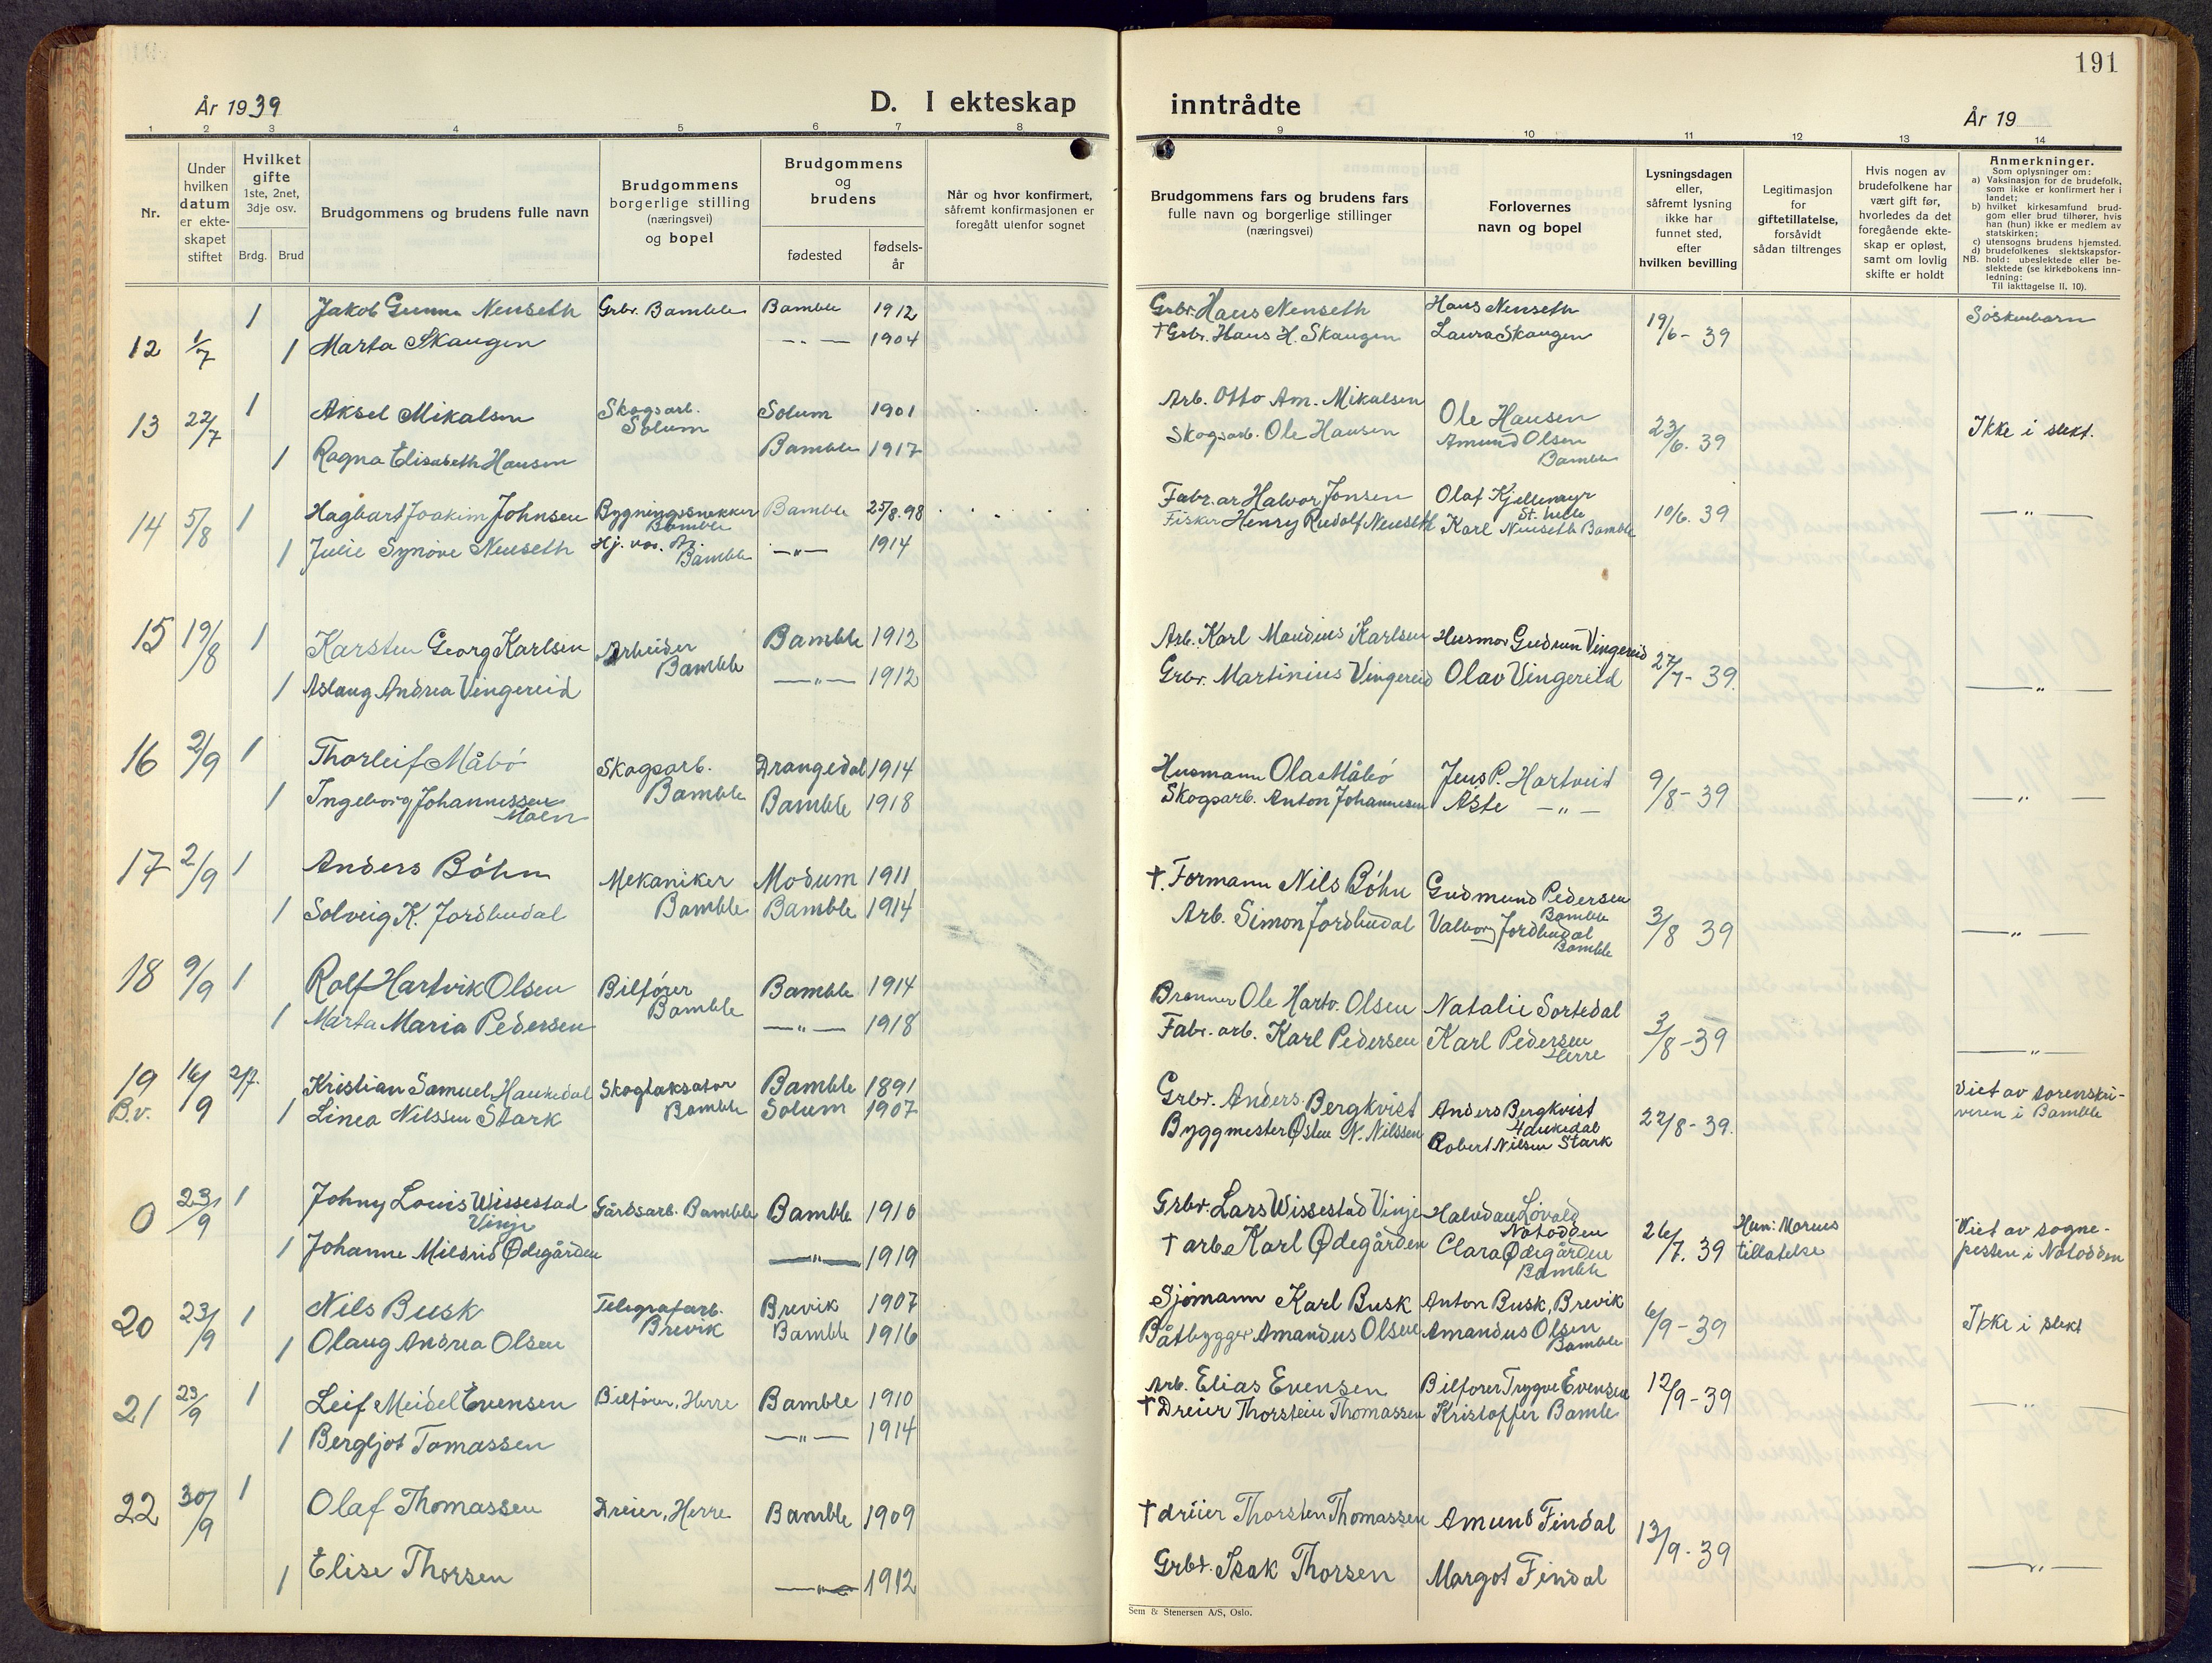 191
År 1939
D. I ekteskap
inntrådte
År 19
1 2 3 4 5 6 7 8 9 10 11 12 13 14
Nr.
Under
hvilken
datum
er ekte-
skapet
stiftet
Hvilket
gifte
1ste, 2net,
3dje osv.
Brdg. Brud
Brudgommens og brudens fulle navn
Brudgommens
borgerlige stilling
(næringsvei)
og bopel
Brudgommens
og
brudens
fødested
fødsels-
år
Når og hvor konfirmert,
såfremt konfirmasjonen er
foregått utenfor sognet
Brudgommens fars og brudens fars
fulle navn og borgerlige stillinger
(næringsvei)
Forlovernes
navn og bopel
Lysningsdagen
eller,
såfremt lysning
ikke har
funnet sted,
efter
hvilken bevilling
Legitimasjon
for
giftetillatelse,
forsåvidt
sådan tiltrenges
Hvis nogen av
brudefolkene har
vært gift før,
hvorledes da det
foregående ekte-
skap er opløst,
samt om lovlig
skifte er holdt
Anmerkninger.
Som oplysninger om:
a) Vaksinasjon for de brudefolk,
som ikke er konfirmert her i
landet;
b) hvilket kirkesamfund brud-
gom eller brud tilhører, hvis
han (hun) ikke er medlem av
statskirken;
c) utensogns brudens hjemsted.
d) brudefolkenes slektskapsfor-
NB. hold: ubeslektede eller be-
slektede (se kirkebokens inn-
ledning:
Til iakttagelse II. 10).
1 Jakob Gunnar Nenseth Grbr. Bamble Bamble 1912 Grbr. Hans Nenseth Hans Nenseth Söskenbarn
12 1/7 1 Marta Skaugen -„- 1904 †Grbr. Hans H. Skaugen Laura Skaugen 19/6-39
13 22/7 1 Aksel Mikalsen Skogsarb. Solum Solum 1901 Arb. Otto Am. Mikalsen Ole Hansen 23/6. 39 Ikke i slekt.
1 Ragna Elisabeth Hansen Bamble 1917 Skogsarb. Ole Hansen Amund Olsen
Bamble
14 5/8 1 Hagbart Joakim Johnsen Bygningssnekker Bamble Bamble 25/8.98 Fabr.ar Halvor Jonsen Olaf Kjellemyr
St. helle 10/6. 39 -„-
1 Julie Synöve Nenseth Bamble -„- 1914 Fisker Henry Rudolf Nenseth Karl Nenseth Bamble
15 19/8 1 Karsten Georg Karlsen Arbeider Bamble 1912 Arb. Karl Maudius Karlsen Husmor Gudrun Vingereid 27/7-39.
1 Aslaug Andrea Vingereid Bamble -„- 1912 Grbr. Martinius Vingereid Olav Vingereid -„-
16 2/9 1 Thorleif Måbö Skogsarb. Drangedal 1914 Husmann Ola Måbö Jens P. Hartveid 9/8-39
1 Ingeborg Johannessen
Moen Bamble Bamble 1918 Skogsarb. Anton Johannesen Aste -„- -„-
17 2/9 1 Anders Böhn Mekaniker Modum 1911 † Formann Nils Böhn Gudmund Pedersen
Bamble
1 Solveig K. Jordbudal Bamble Bamble 1914 Arb. Simon Jordbudal Valborg Jordbudal
Bamble 3/8 39 -„-
18 9/9 1 Rolf Hartvik Olsen Bilförer Bamble 1914 Brenner Ole Hartv. Olsen Natalie Sortedal
1 Marta Maria Pedersen Bamble -„- 1918 Fabr. arb. Karl Pedersen Karl Pedersen
Herre 3/8-39 -„-
19 16/9 2/7. Kristian Samuel Haukedal Skogtaksator Bamble 1891 Grbr. Anders Bergkvist Anders Bergkvist
Haukedal Viet av sorenskri-
B.v. 1 Linea Nilssen Stark Bamble Solum 1907 Byggmester Østen N. Nilssen Robert Nilsen Stark 22/8-39. veren i Bamble
0 23/9 1 Johny Louis Wissestad
Vinje Gårdsarb. Bamble Bamble 1910 Grbr. Lars Wissestad Vinje Halvdan Lövald
Notodden 26/7. 39 Hun: Morens
tillatelse Viet av sogne-
1 Johanne Mildrid Ødegården -„- 1919 † arb. Karl Ødegården Clara Ødegården
Bamble presten i Notodden
20 23/9 1 Nils Busk Telegrafarb. Brevik 1907 Sjömann Karl Busk Anton Busk, Brevik 6/9-39 Ikke i slekt
1 Olaug Andrea Olsen Brevik Bamble 1916 Båtbygger Amandus Olsen Amandus Olsen
Bamble
21 23/9 1 Leif Meidel Evensen Bilförer, Herre Bamble 1910 Arb. Elias Evensen Bilförer Trygve Evensen 12/9-39
1 Bergljot Tomassen -„- 1914 † Dreier Thorstein Thomassen Kristoffer Bamle -„-
22 30/9 1 Olaf Thomassen Dreier, Herre Bamble 1909 † dreier Thorsten Thomassen Amund Findal 13/9-39
1 Elise Thorsen -„- 1912 Grbr. Isak Thorsen Margot Findal -„-
Sem & Stenersen A/S, Oslo.